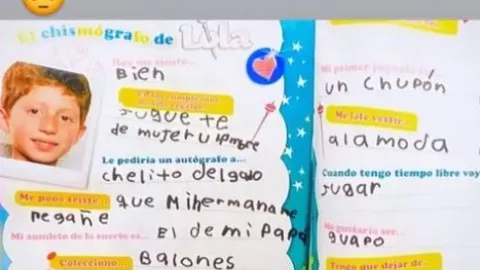 El chismógrafo de Lola
Hoy me siento...
Bien
jugue te
de mujer u
Le pediría un autógrafo a...
chelito delgado
Me pone triste...
que Mi hermana me
regañe
Mi amuleto de la suerte es...
El de mi papa
Colecciono...
BALONES
Mi primer
un chupón
Me late vestir...
a la moda
Cuando tengo tiempo libre voy
Jugar
Me gustaría ser...
guapo
Tengo que dejar de